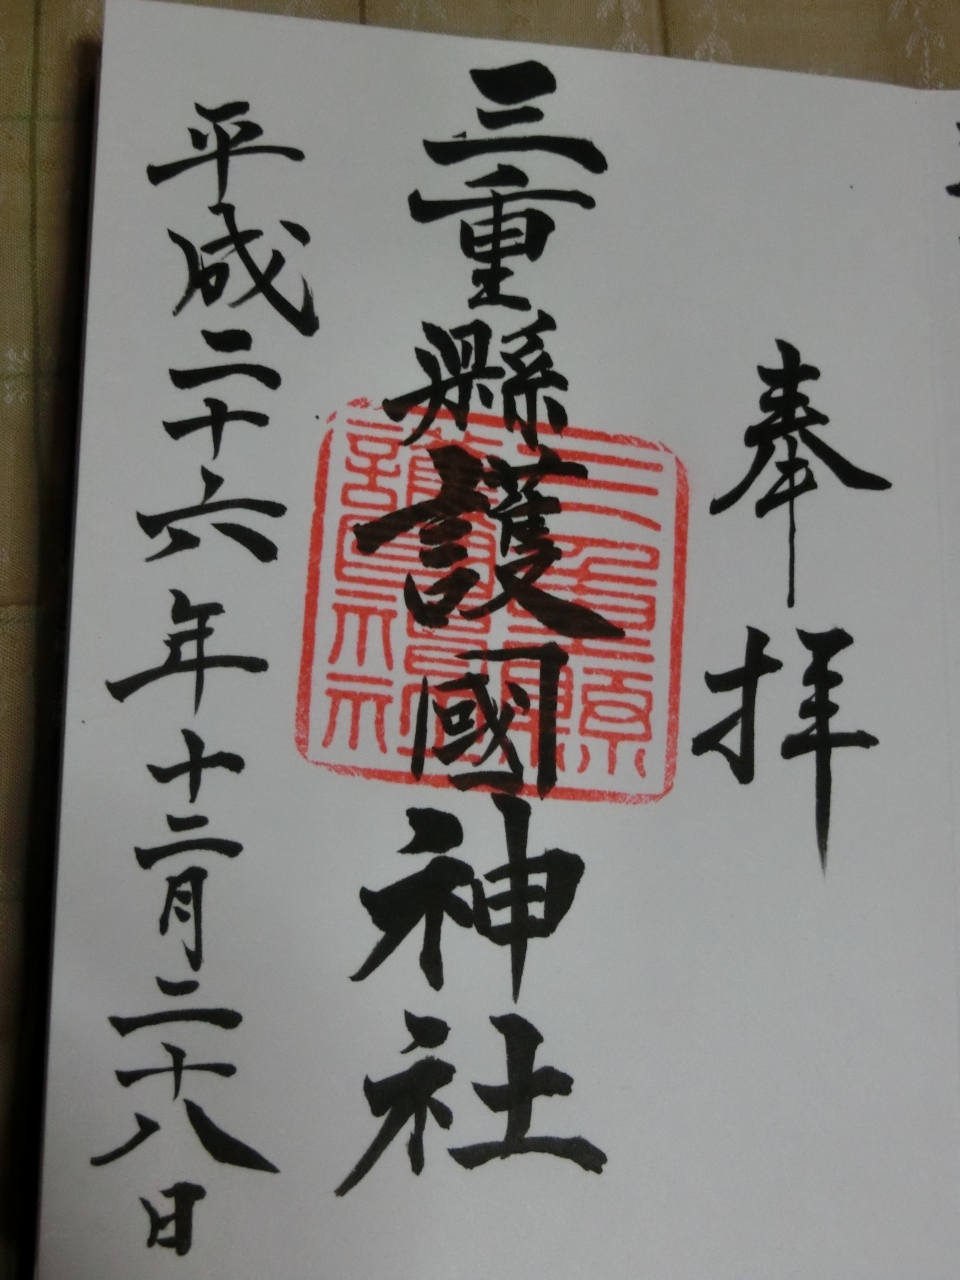 奉拝
三重縣護國神社
三重縣護國神社
平成二十六年十二月二十八日